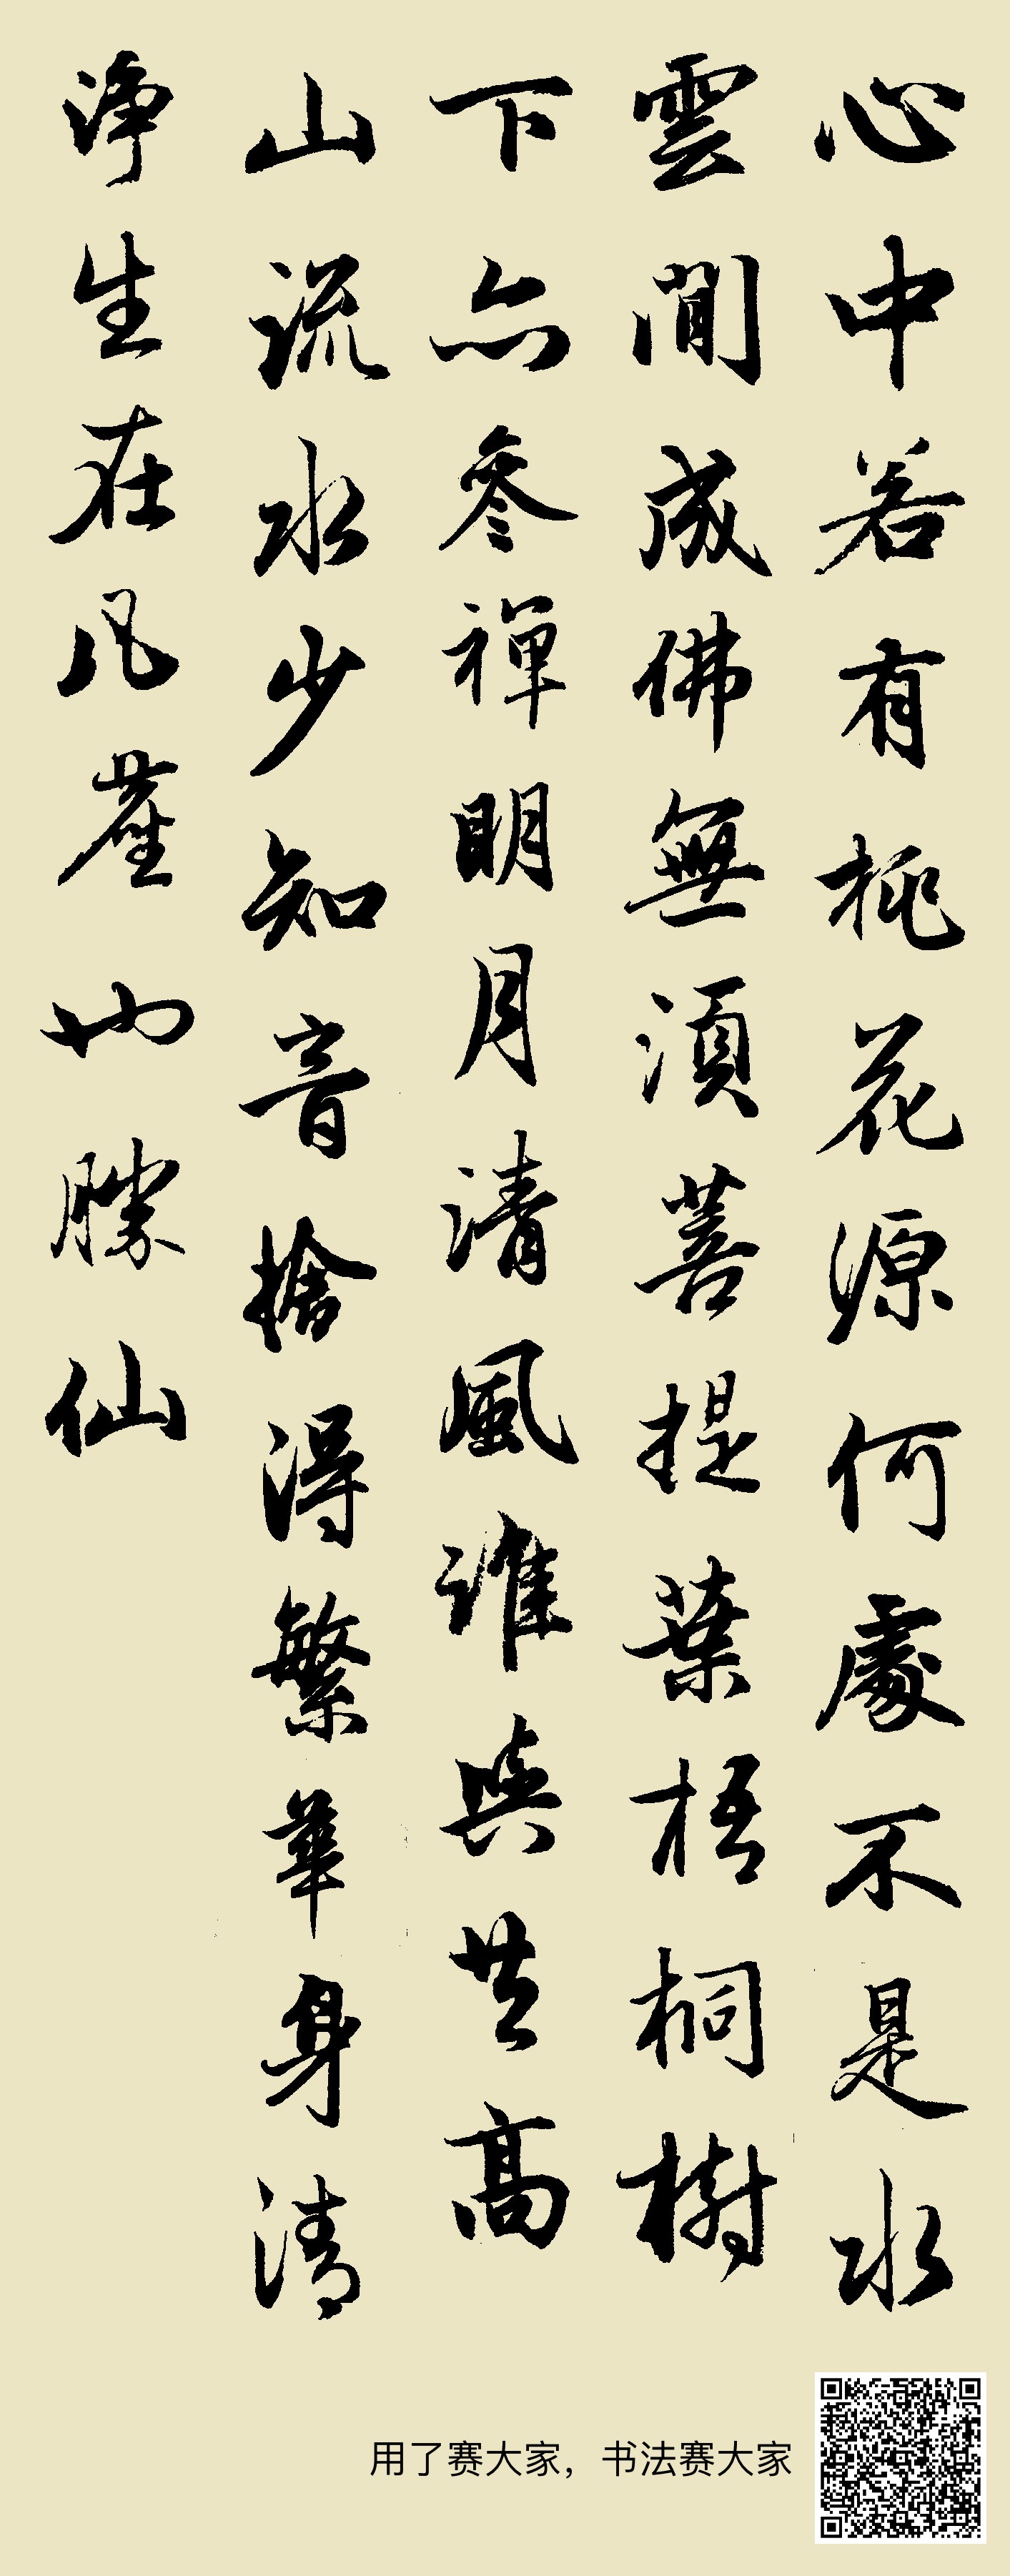 心中若有桃花源何處不是水
雲間成佛無須菩提葉梧桐樹
下亦參禪明月清風誰與共高
山流水少知音捨得繁華身清
淨生在凡塵也勝仙
用了赛大家，书法赛大家